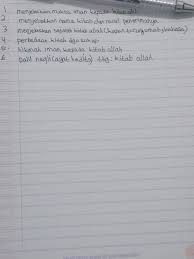 1 menjelaskan makna iman kepada kitab allah
2 menyebutkan nama kitab dan rasul penerimanya
3 menjelaskan sejarah kitab allah (
4 perbedaan kitab dgn suhuf
5 hikmah iman kepada kitab allah
6 dalil naqli (ayat hadits) ttg. kitab allah